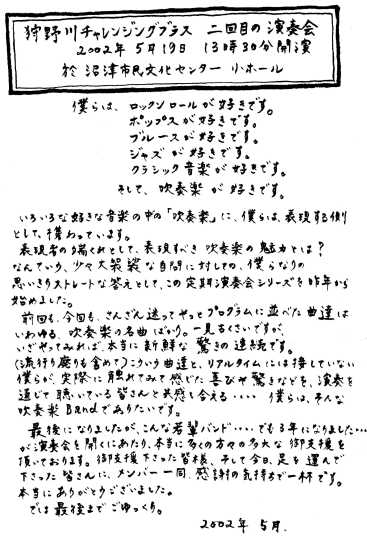 狩野川チャレンジングブラス 二回目の演奏会
2002年5月19日 13時30分開演
於 沼津市民文化センター 小ホール
僕らは、ロックンロールが好きです。
ポップスが好きです。
ブルースが好きです。
ジャズが好きです。
クラシック音楽が好きです。
そして、吹奏楽が好きです。
いろいろな好きな音楽の中の「吹奏楽」に、僕らは、表現する側
として、携わっています。
表現者の端くれとして、表現すべき吹奏楽の魅力とは?
なんていう、少々大袈裟な自問に対しての、僕らなりの
思いきりストレートな答えとして、この定期演奏会シリーズを昨年から
始めました。
前回も、今回も、さんざん迷ってやっとプログラムに並べた曲達は
いわゆる、吹奏楽の名曲ばかり。一見古くさいですが、
いざやってみれば、本当に新鮮な驚きの連続です。
(流行り廃りも含めて)こういう曲達と、リアルタイムには接していない
僕らが、実際に触れてみて感じた喜びや驚きなどを、演奏を
通じて聴いている皆さんと共感し合える‥‥僕らは、そんな
吹奏楽Bandでありたいです。
最後になりましたが、こんな若輩バンド‥‥でも3年になりました‥‥
が演奏会を開くにあたり、本当に多くの方々の多大な御支援を
頂いております。御支援下さった皆様、そして今日、足を運んで
下さった皆さんに、メンバー一同、感謝の気持ちで一杯です。
本当にありがとうございました。
では最後までごゆっくり。
2002年 5月.